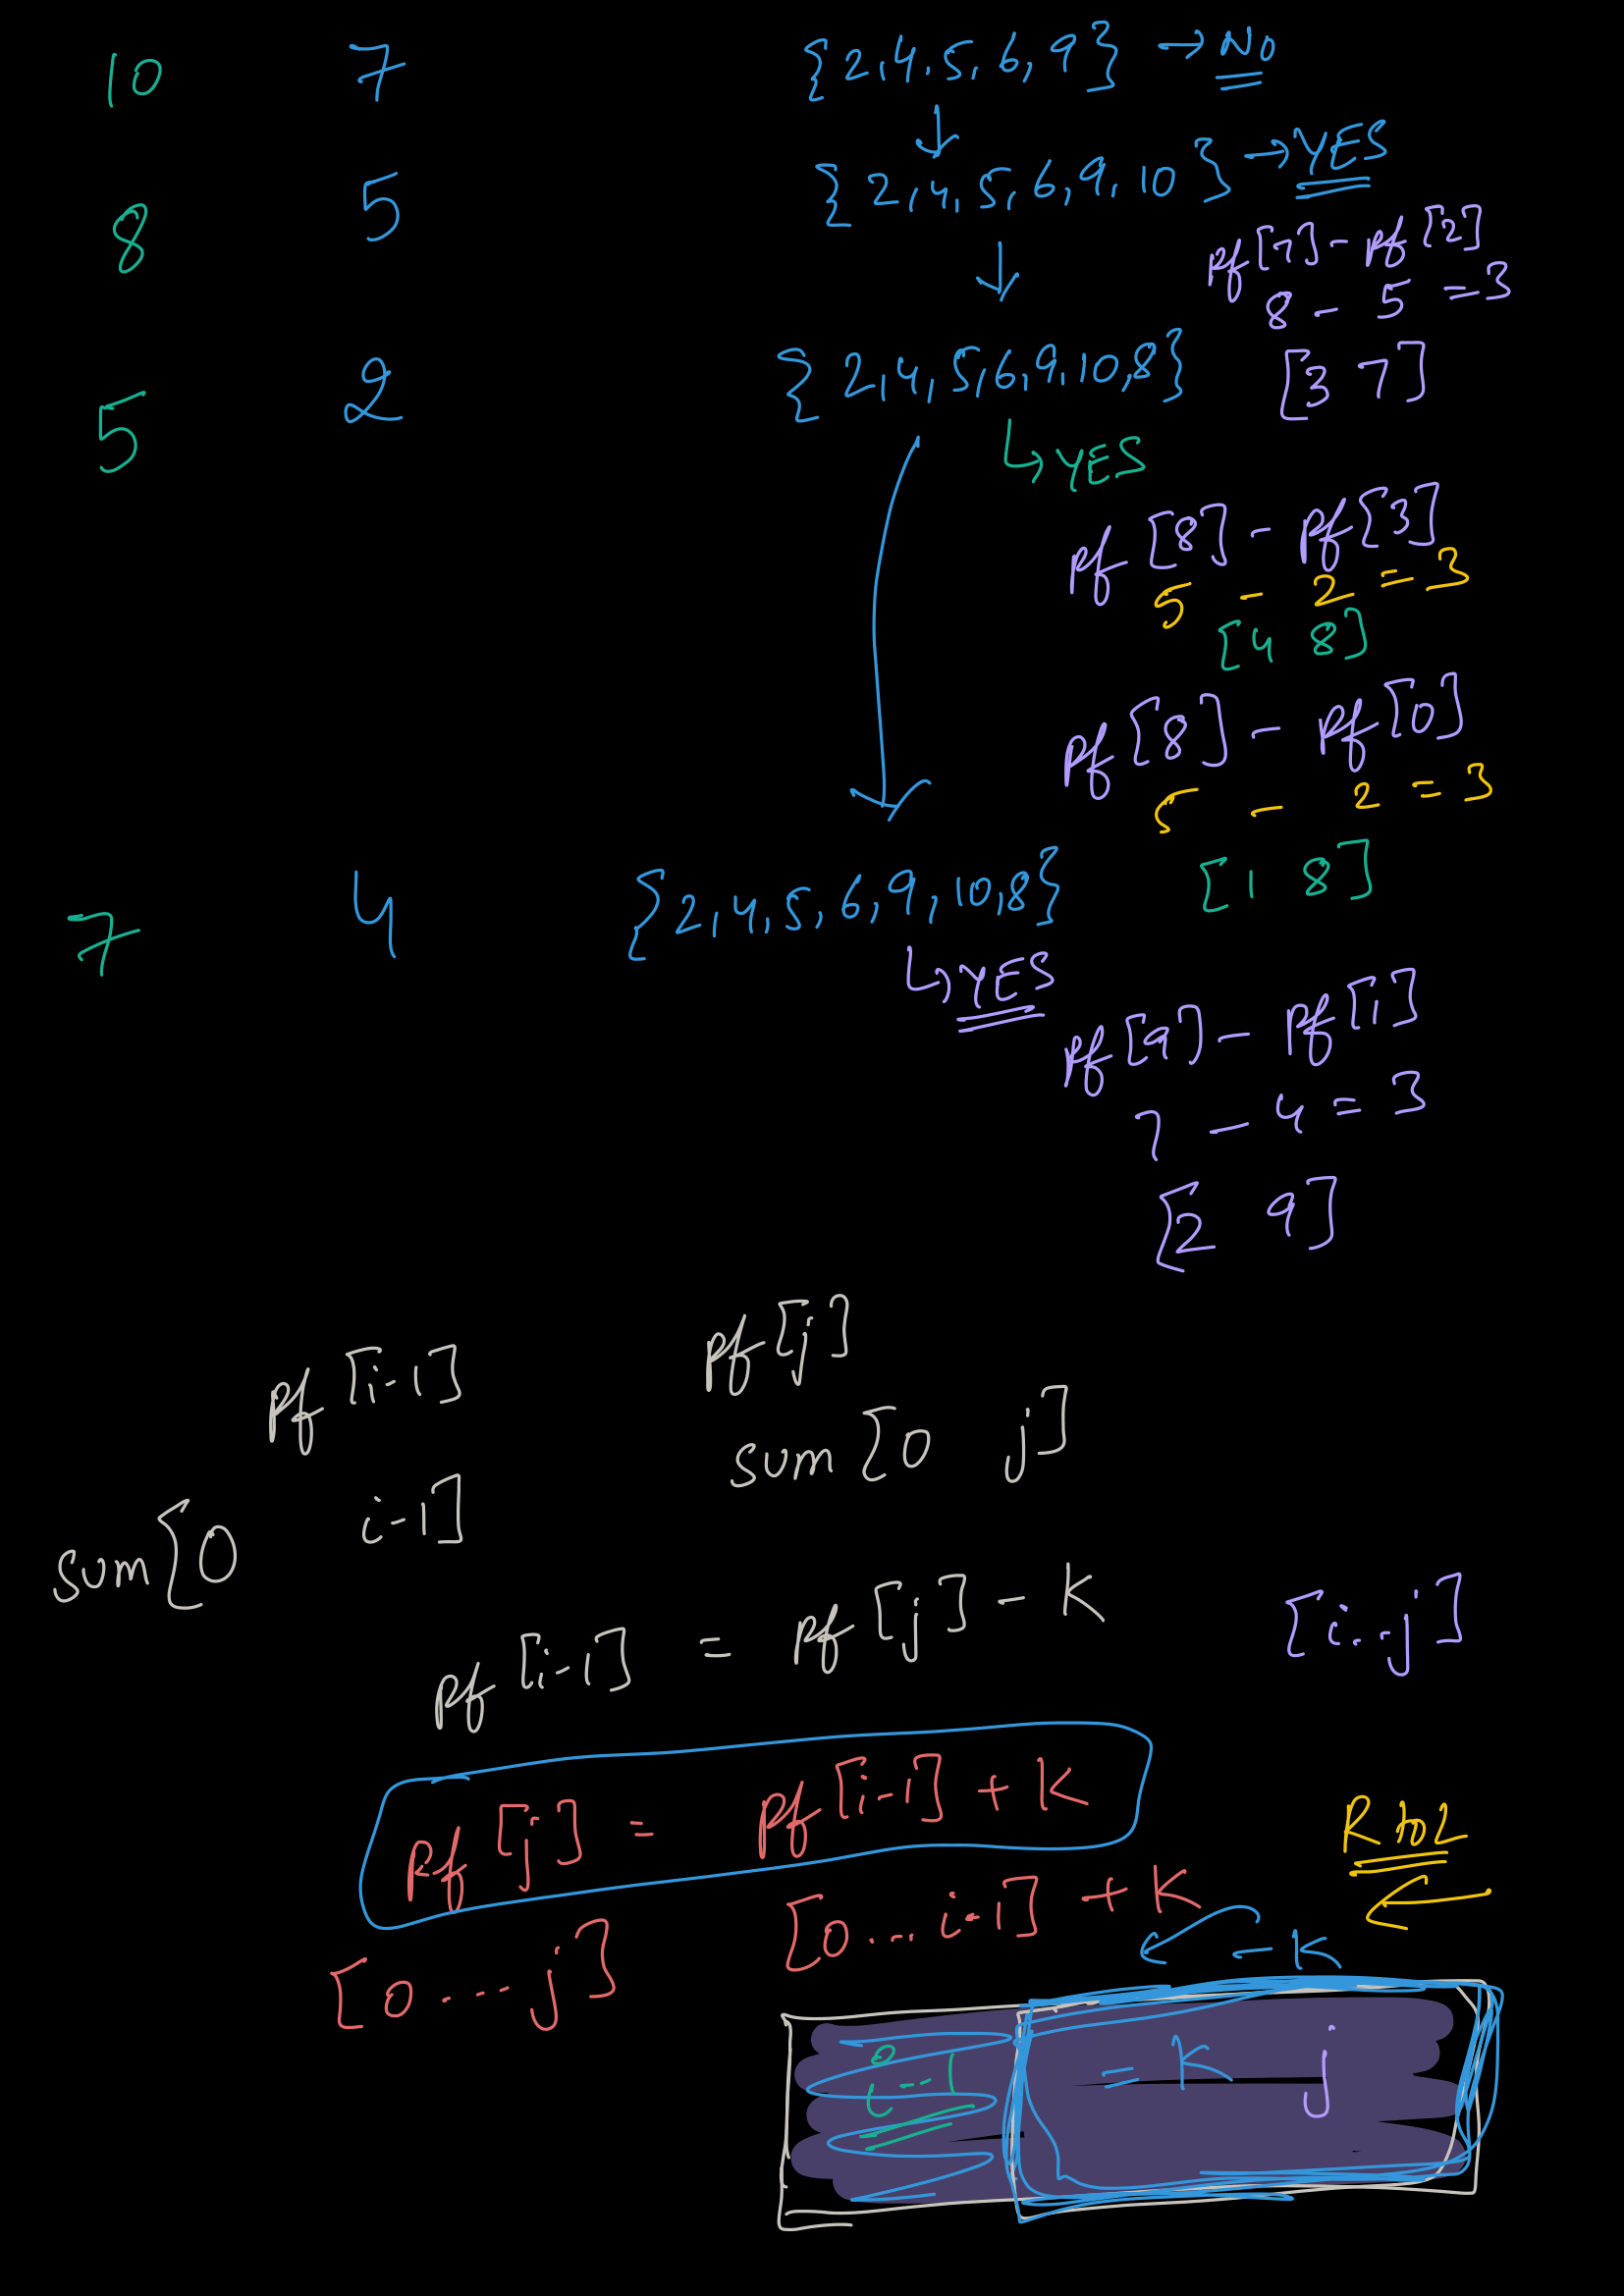 10 7 {2,4,5,6,9} → NO
↓
8 5 {2,4,5,6,9,10} → YES
↓
pf[7] - pf[2]
8 - 5 = 3
[3 7]
5 2 {2,4,5,6,9,10,8}
↳ YES
pf[8] - pf[3]
5 - 2 = 3
[4 8]
pf[8] - pf[0]
5 - 2 = 3
[1 8]
7 4 {2,4,5,6,9,10,8}
↳ YES
pf[9] - pf[1]
7 - 4 = 3
[2 9]
pf[i-1] pf[j]
sum[0 i-1] sum[0 j]
pf[i-1] = pf[j] - K [i..j]
pf[j] = pf[i-1] + K
R to L
[0...j] [0...i-1] + K
- K
i-1 = K j